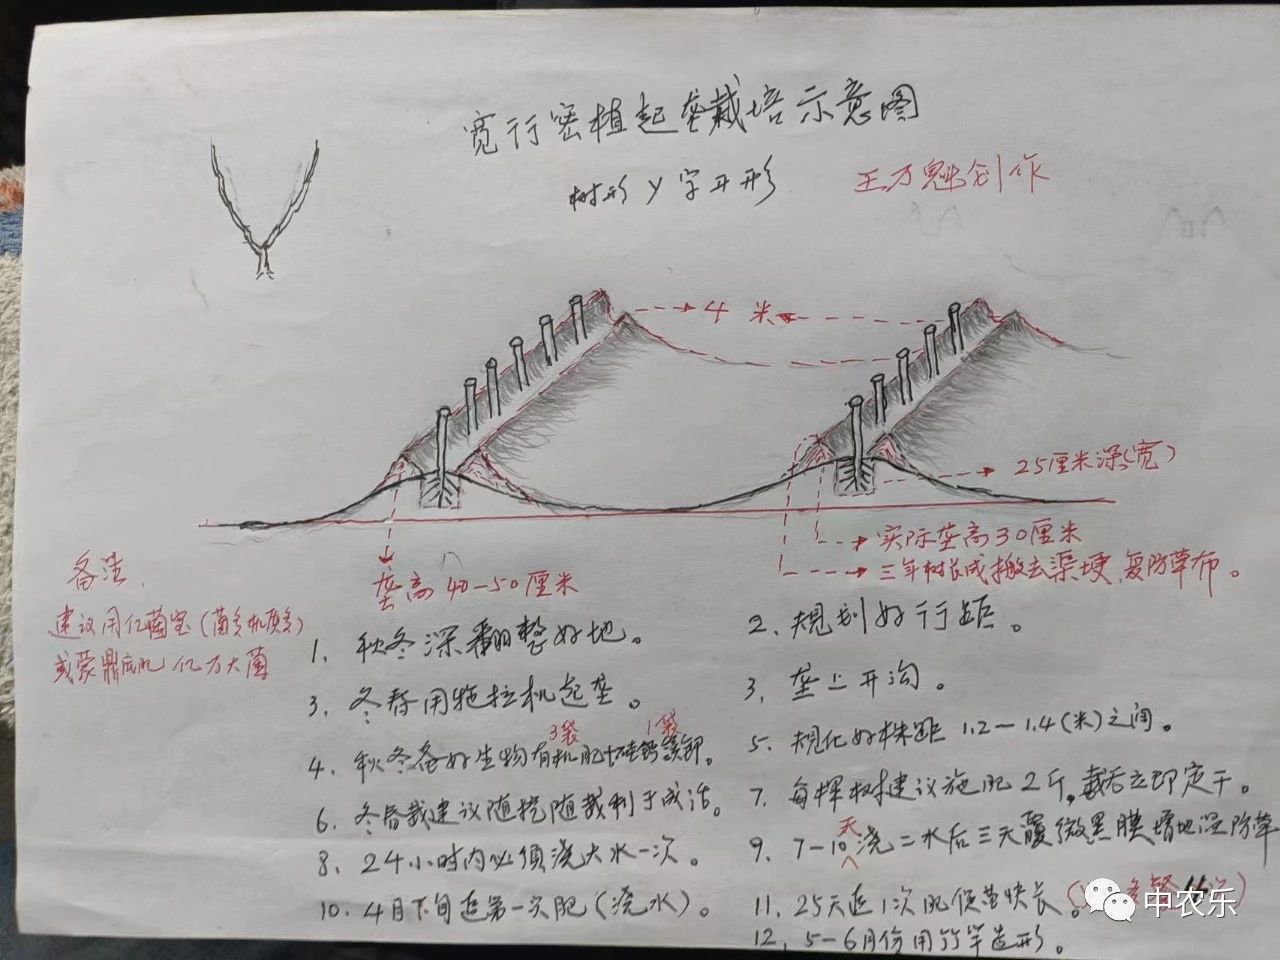 宽行密植起垄栽培示意图
树形 Y 字开形
王万魁创作
4 米
25厘米深(宽)
实际垄高30厘米
三年树长成搬去渠埂,复防草布。
垄高 40-50厘米
备注、
建议用亿菌宝(菌多机质多)
或蒙鼎底肥 亿万大菌
1、秋冬深翻整好地。
2、规划好行距。
3、冬春用拖拉机起垄。
3、垄上开沟。
3袋 1袋
4、秋冬备好生物有机肥+硅钙镁钾。
5、规化好株距 1.2-1.4(米)之间。
6、冬春栽建议随挖随栽利于成活。
7、每棵树建议施肥2斤,栽后立即定干。
8、24小时内必须浇大水一次。
9、7-10天浇二水后三天覆微黑膜增地湿防草
10、4月下旬追第一次肥(浇水)。
11、25天追1次肥促苗快长。
12、5-6月份用竹竿造形。
中农乐